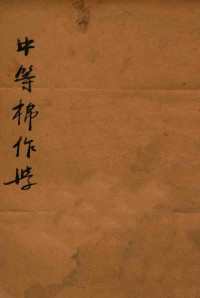 中等棉作学